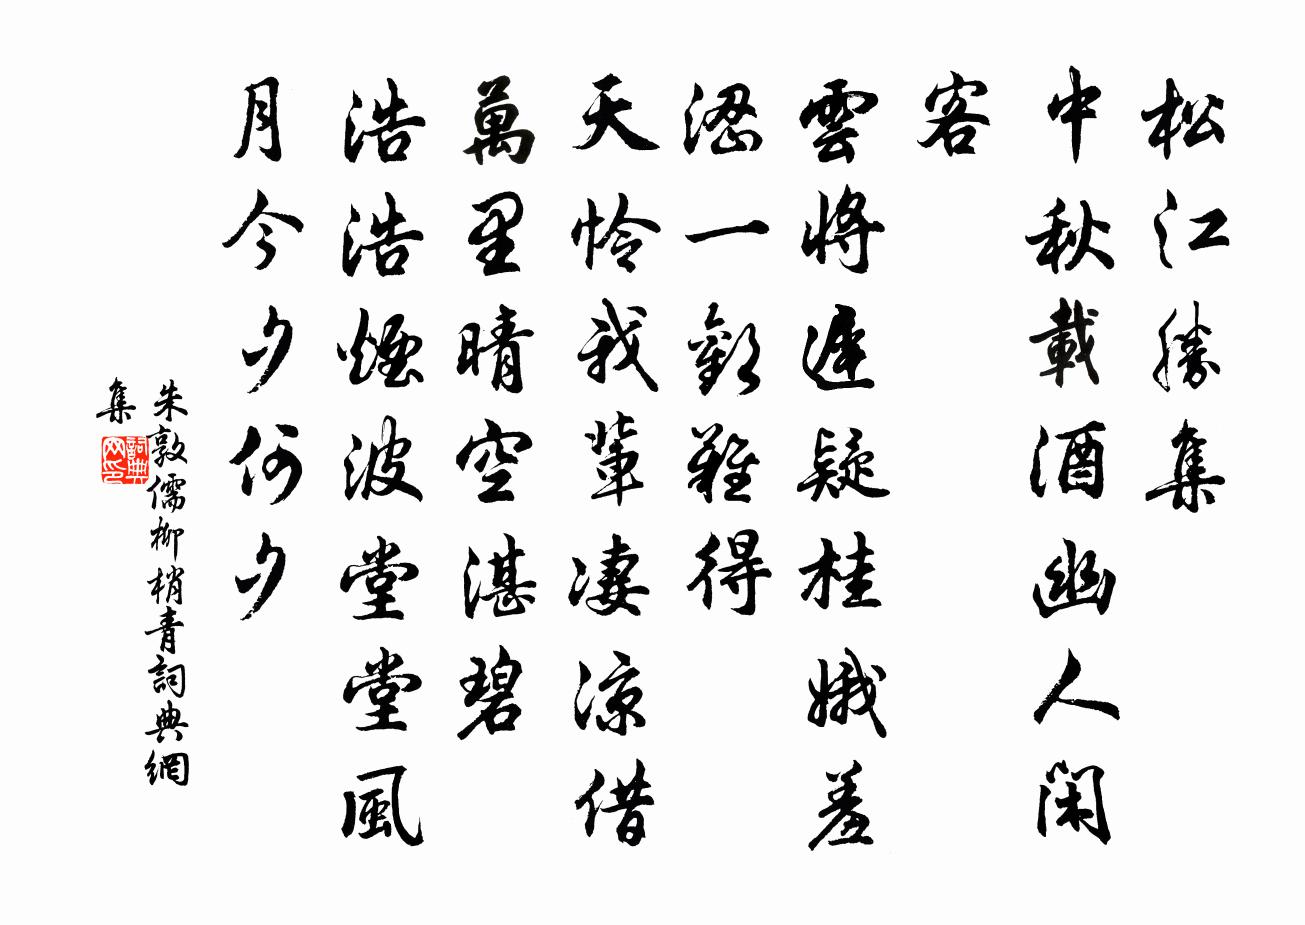 松江勝集
中秋載酒幽人閑
客
雲將遲疑桂娥羞
澀一歡難得
天憐我輩凄涼借
萬里晴空湛碧
浩浩煙波堂堂風
月今夕何夕
朱敦儒柳梢青詞典網
集
詞典
网印